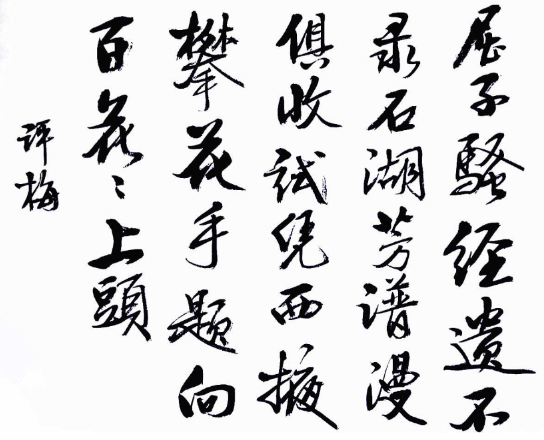 屈子騷經遺不
录石湖芳譜漫
俱收試凭西掖
攀花手題向
百花〻上頭
評梅